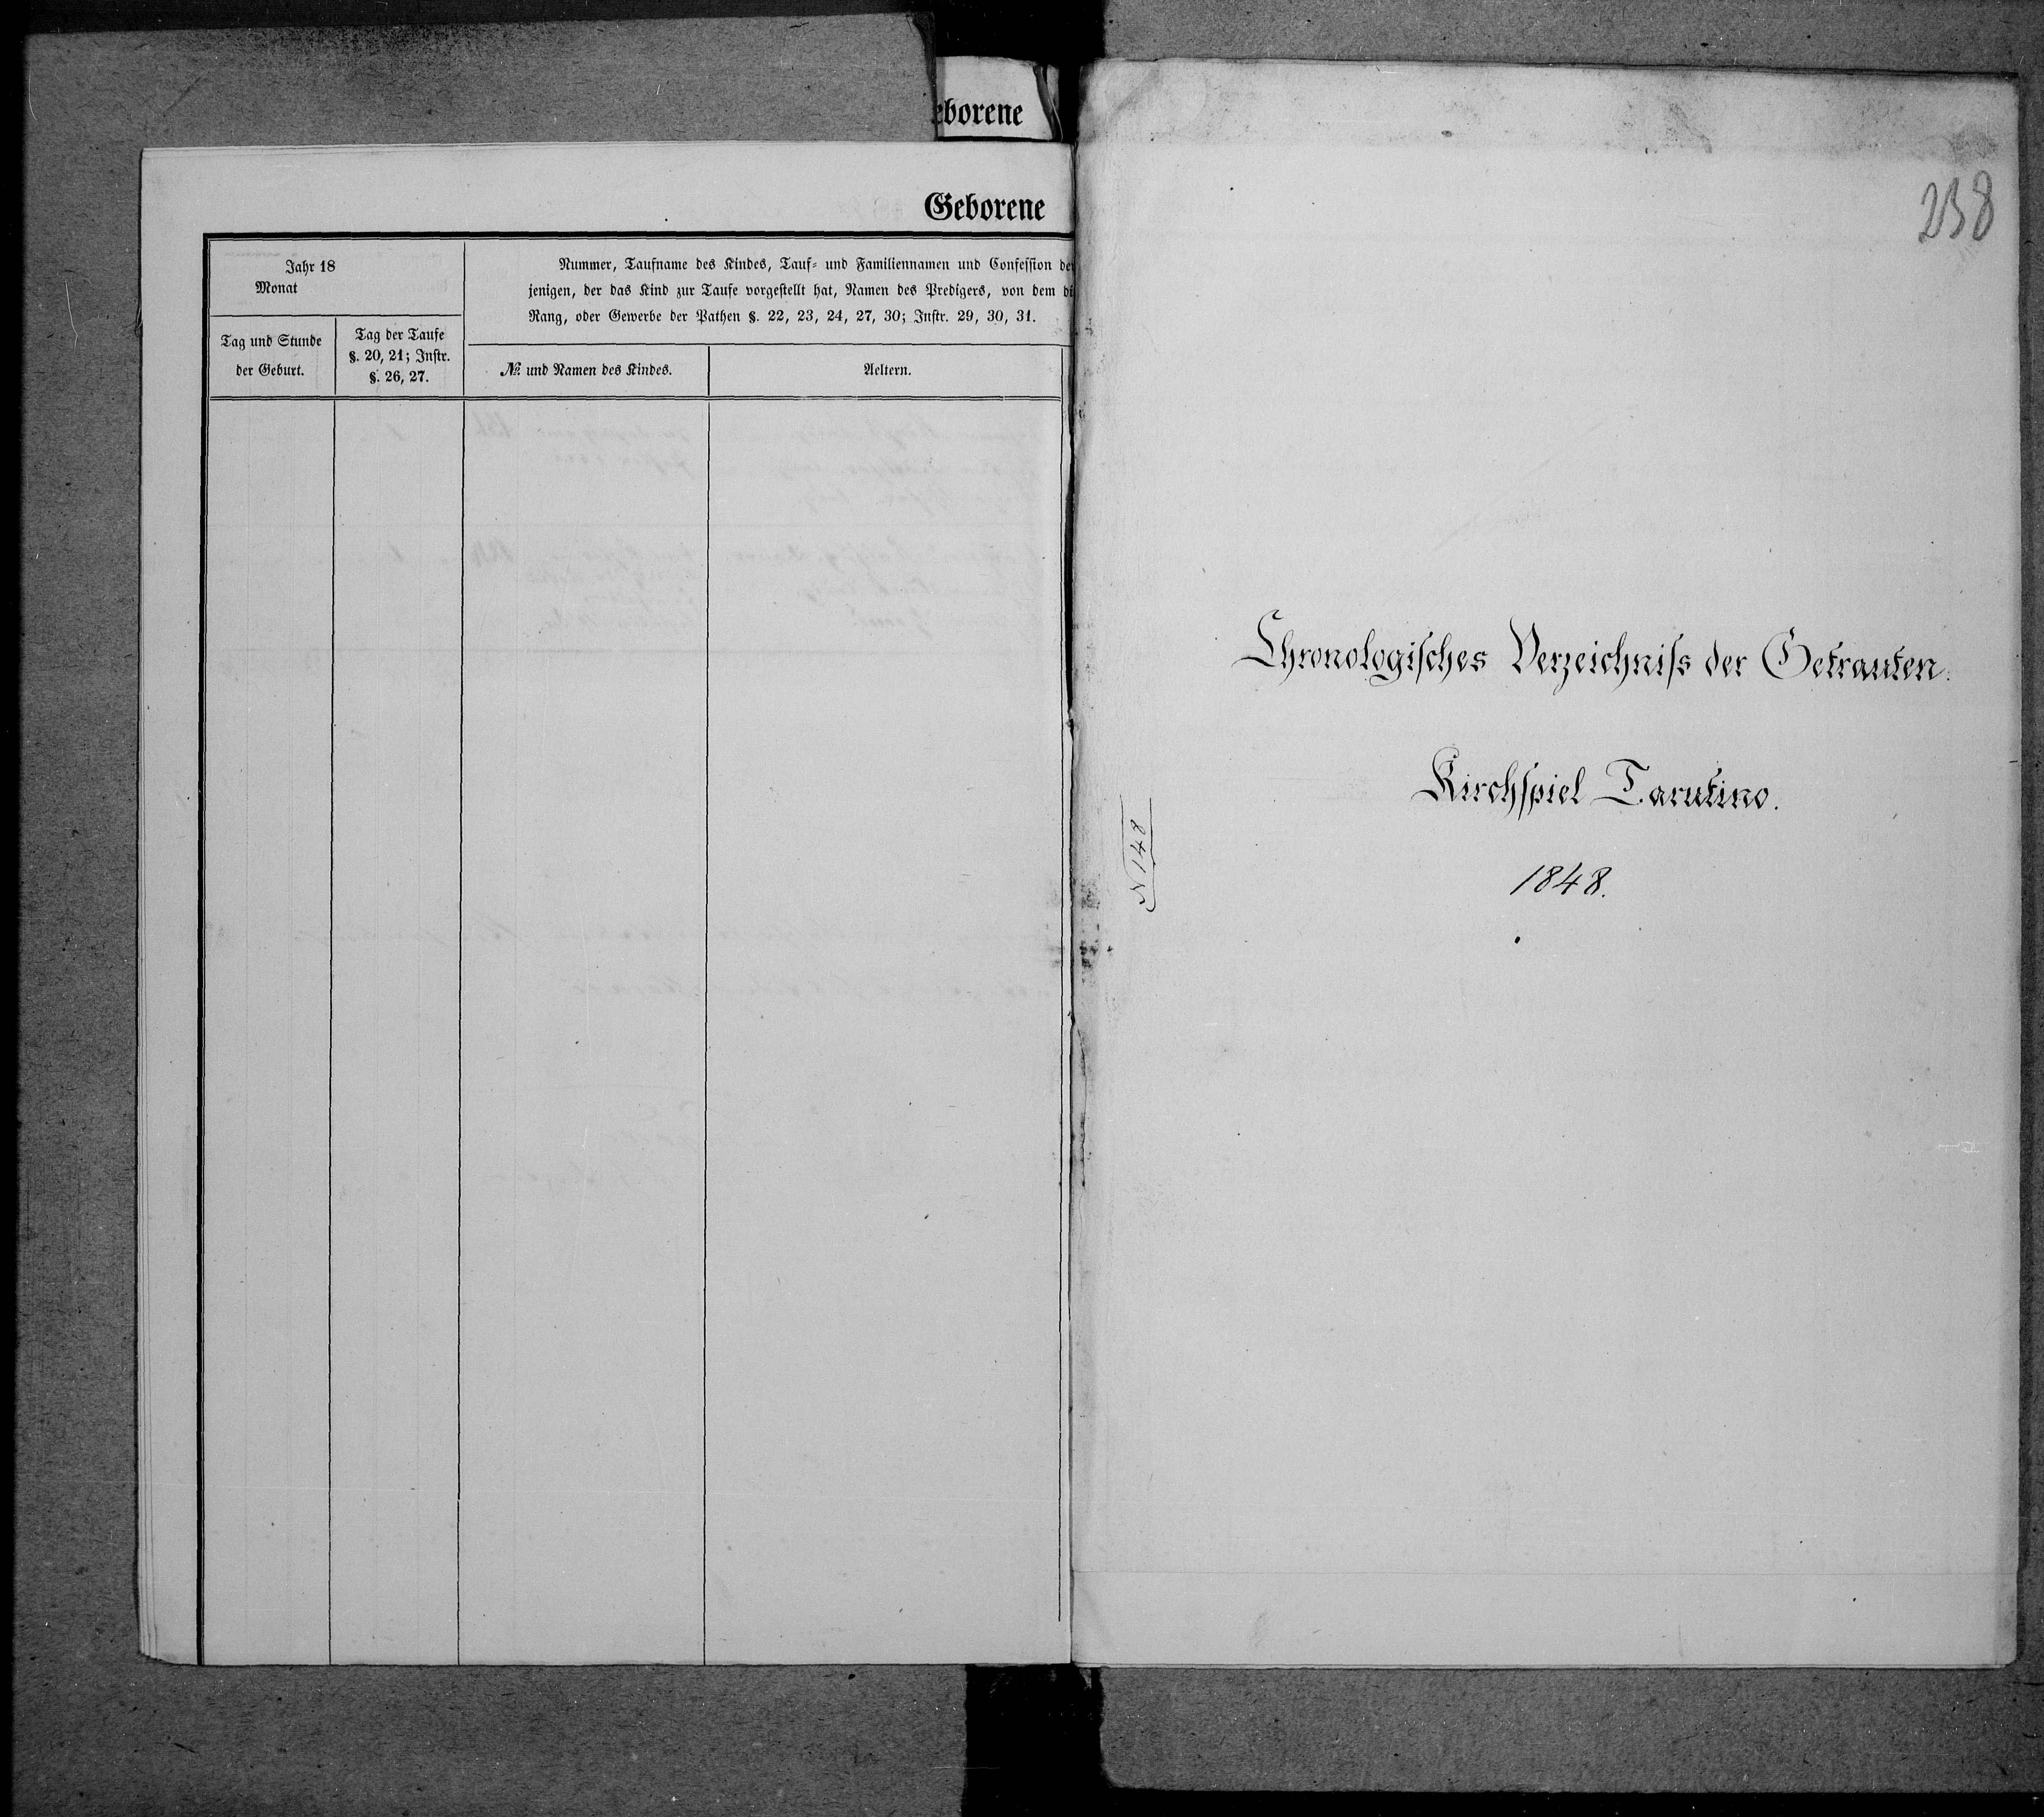 eborene
Geborene
Jahr 18
Monat
Tag und Stunde
der Geburt.
Tag der Taufe
§. 20, 21; Instr.
§. 26, 27.
Nummer, Taufname des Kindes, Tauf- und Familiennamen und Confession
jenigen, der das Kind zur Taufe vorgestellt hat, Namen des Predigers, von dem
Rang, oder Gewerbe der Pathen §. 22, 23, 24, 27, 30; Instr. 29, 30, 31.
№ und Namen des Kindes.
Aeltern.
238
Chronologisches Verzeichniſs der Getrauten.
Kirchspiel Tarutino.
1848.
N 148